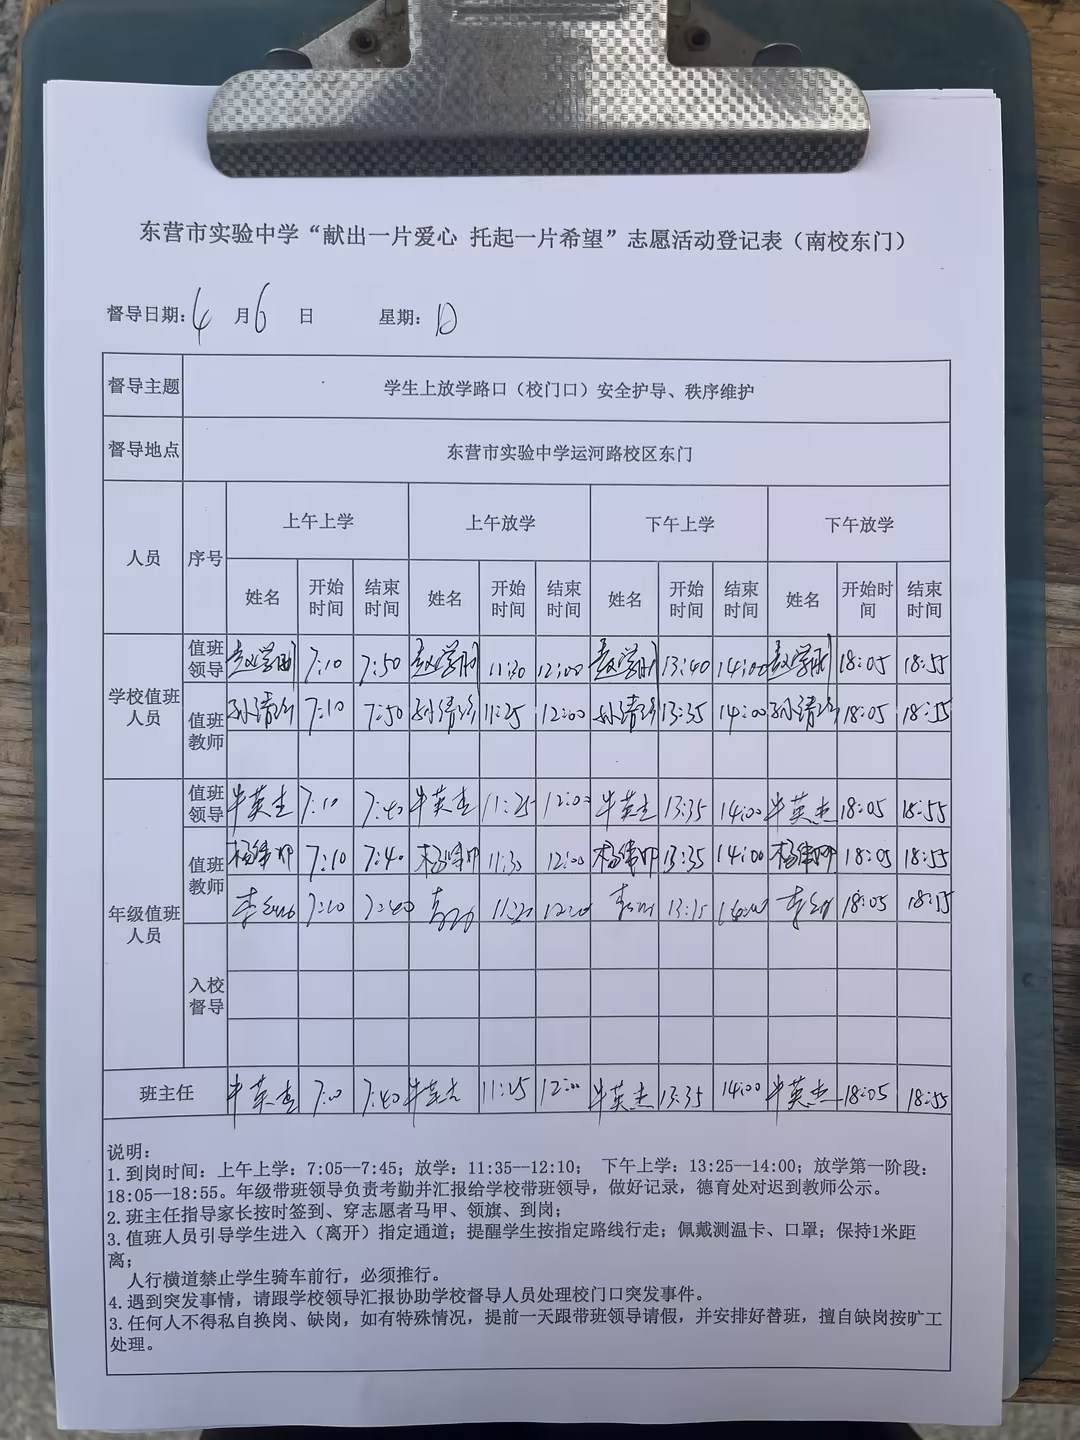 东营市实验中学“献出一片爱心 托起一片希望”志愿活动登记表（南校东门）
督导日期: 4 月 6 日 星期: 日
督导主题 学生上放学路口（校门口）安全护导、秩序维护
督导地点 东营市实验中学运河路校区东门
人员 序号 上午上学 上午放学 下午上学 下午放学
姓名 开始时间 结束时间 姓名 开始时间 结束时间 姓名 开始时间 结束时间 姓名 开始时间 结束时间
学校值班人员 值班领导 7:10 7:50 11:30 12:00 13:40 14:00 18:05 18:55
值班教师 7:10 7:50 11:25 12:00 13:35 14:00 18:05 18:55
年级值班人员 值班领导 牛英杰 7:10 7:40 牛英杰 11:25 12:00 牛英杰 13:35 14:00 牛英杰 18:05 18:55
值班教师 7:10 7:40 11:30 12:00 13:35 14:00 18:05 18:55
18:05 18:55
入校督导
班主任 牛英杰 7:40 牛英杰 11:25 12:00 牛英杰 13:35 14:00 牛英杰 18:05 18:55
说明:
1. 到岗时间：上午上学：7:05--7:45；放学：11:35--12:10； 下午上学：13:25--14:00；放学第一阶段：
18:05--18:55。年级带班领导负责考勤并汇报给学校带班领导，做好记录，德育处对迟到教师公示。
2. 班主任指导家长按时签到、穿志愿者马甲、领旗、到岗；
3. 值班人员引导学生进入（离开）指定通道；提醒学生按指定路线行走；佩戴测温卡、口罩；保持1米距
离；
人行横道禁止学生骑车前行，必须推行。
4. 遇到突发事情，请跟学校领导汇报协助学校督导人员处理校门口突发事件。
3. 任何人不得私自换岗、缺岗，如有特殊情况，提前一天跟带班领导请假，并安排好替班，擅自缺岗按旷工
处理。